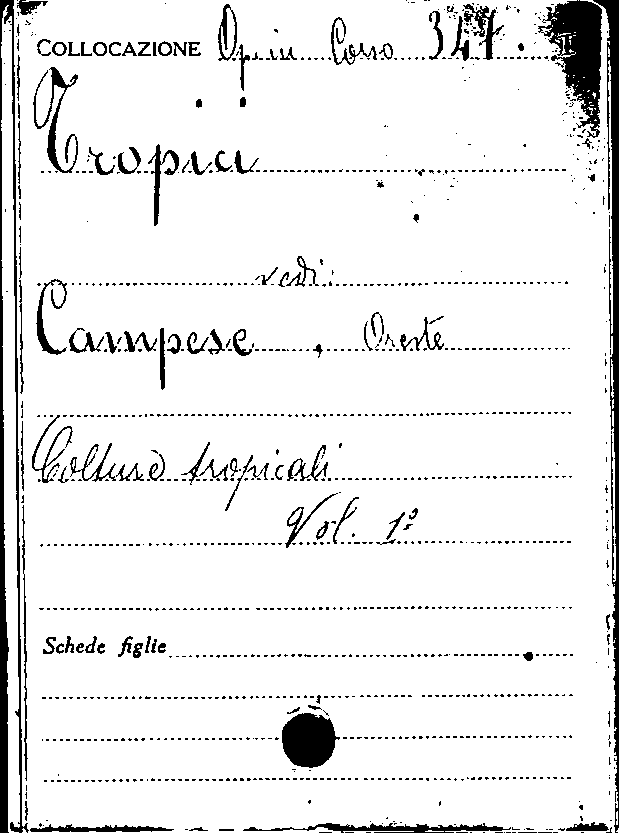 COLLOCAZIONE Op. in Corso 347.
Tropici
vedi:
Campese, Oreste
Colture tropicali
Vol. 1º
Schede figlie